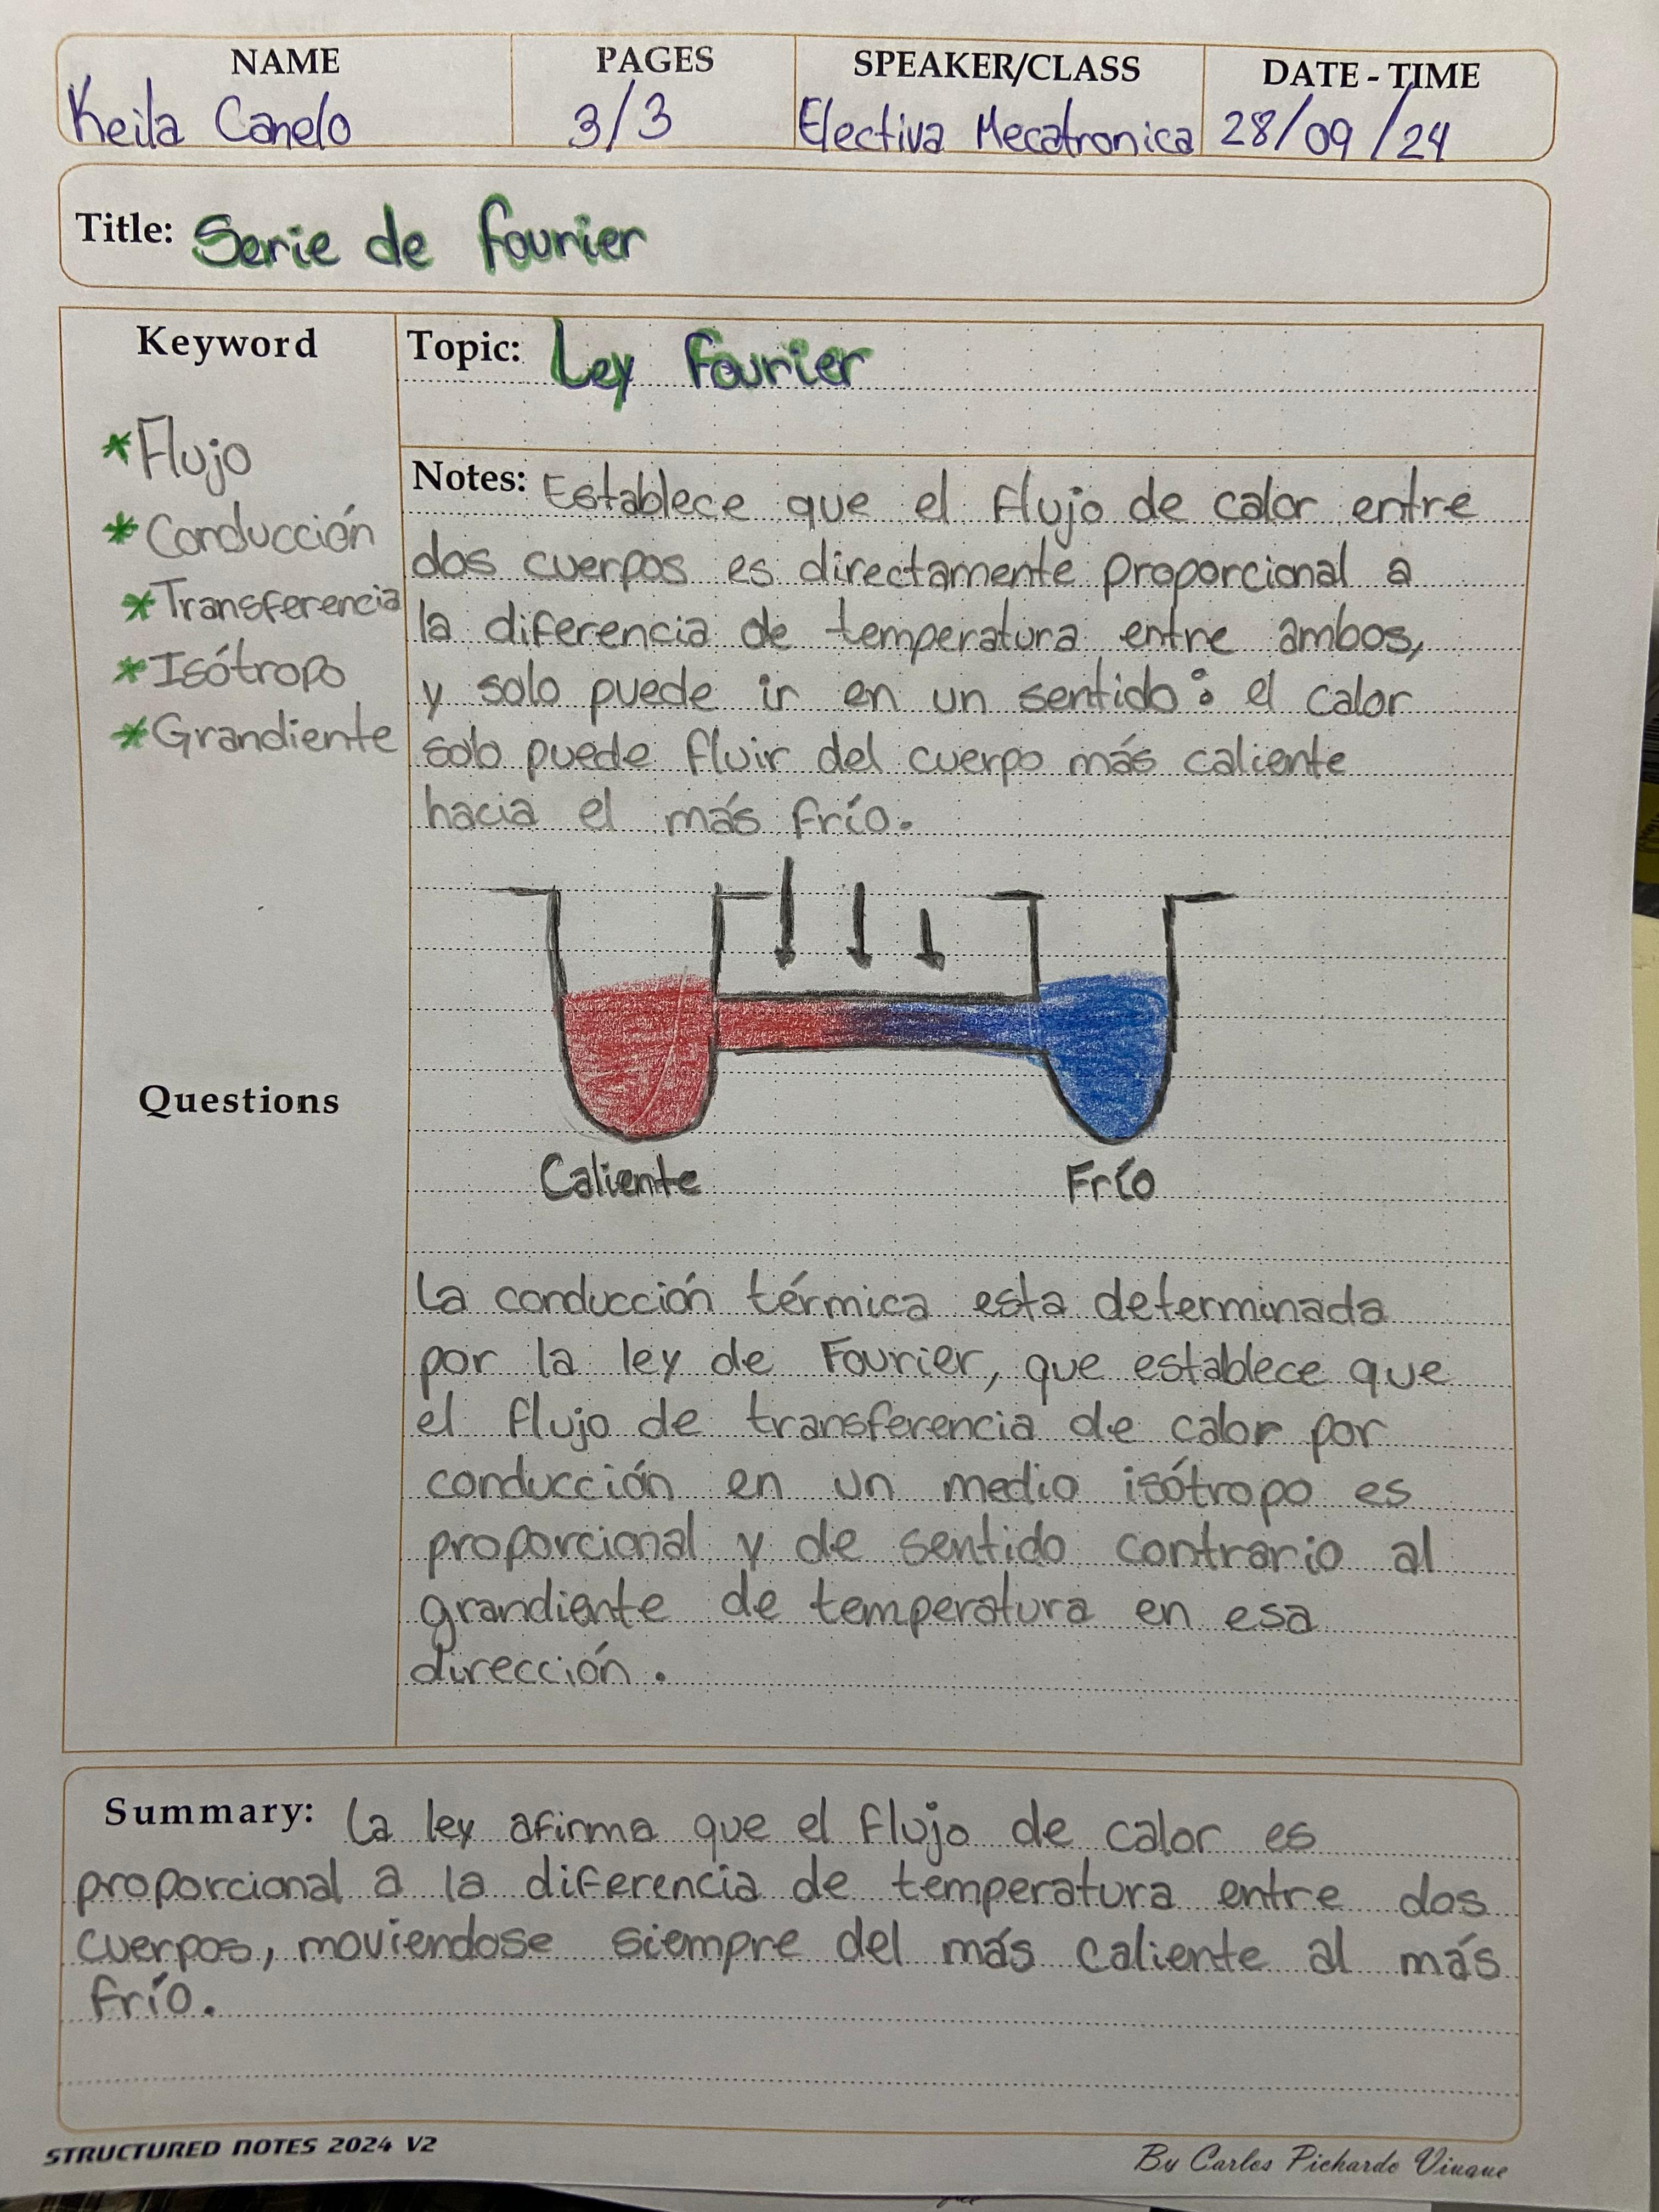 NAME PAGES SPEAKER/CLASS DATE - TIME
Keila Canelo 3/3 Electiva Mecatronica 28/09/24
Title: Serie de fourier
Keyword
* Flujo
* Conducción
* Transferencia
* Isótropo
* Grandiente
Questions
Topic: Ley Fourier
Notes: Establece que el flujo de calor entre
dos cuerpos es directamente proporcional a
la diferencia de temperatura entre ambos,
y solo puede ir en un sentido: el calor
solo puede fluir del cuerpo más caliente
hacia el más frío.
Caliente Frío
La conducción térmica esta determinada
por la ley de Fourier, que establece que
el flujo de transferencia de calor por
conducción en un medio isótropo es
proporcional y de sentido contrario al
grandiente de temperatura en esa
dirección.
Summary: La ley afirma que el flujo de calor es
proporcional a la diferencia de temperatura entre dos
cuerpos, moviendose siempre del más caliente al más
frío.
STRUCTURED NOTES 2024 V2
By Carlos Pichardo Viuque